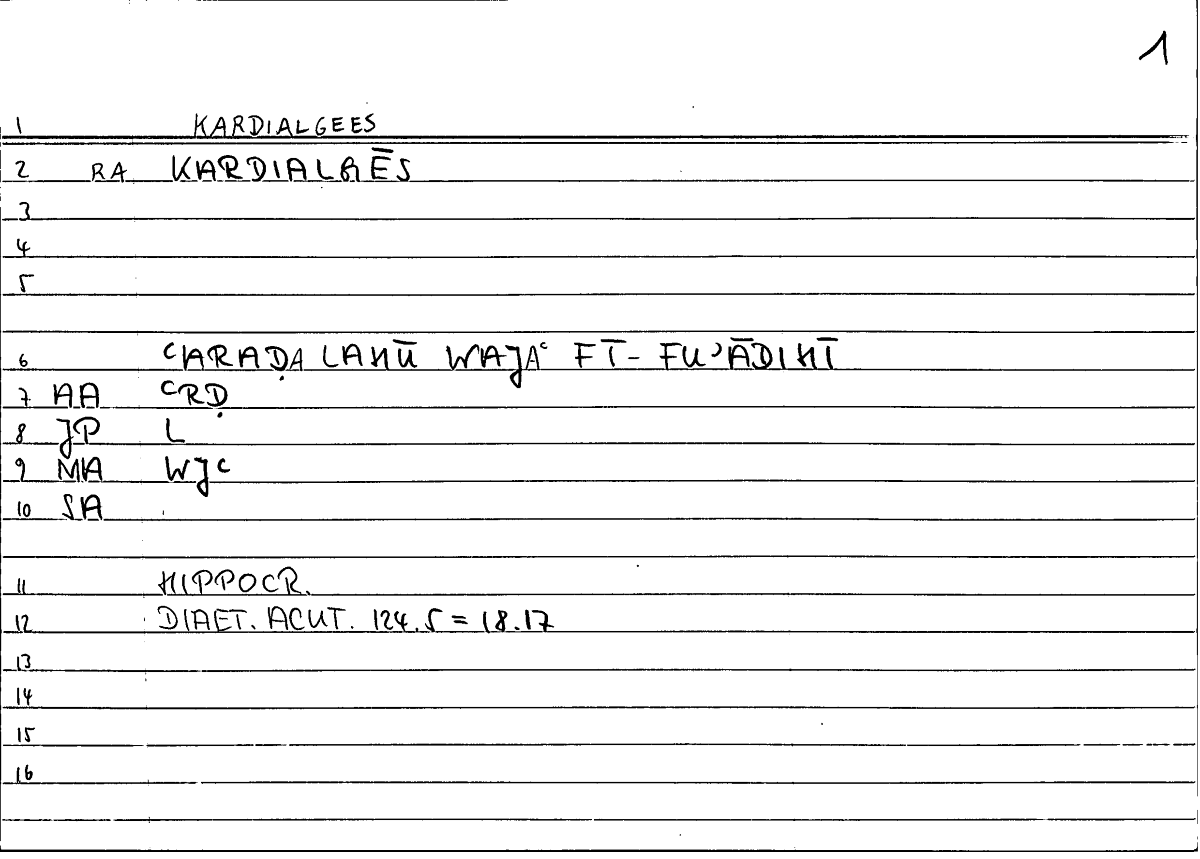 1
1 KARDIALGEES
2 RA KARDIALGĒS
3
4
5
6 ʿARAḌA LAHŪ WAJAʿ FĪ- FUʾĀDIHĪ
7 AA ʿRḌ
8 JP L
9 MA WJʿ
10 SA
11 HIPPOCR.
12 DIAET. ACUT. 124.5 = 18.17
13
14
15
16